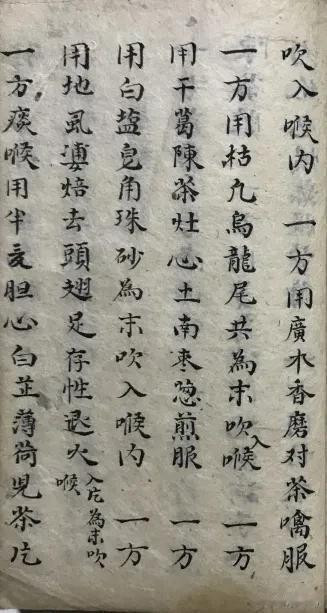 吹入喉内　一方用廣木香磨对茶噙服
一方用枯凡烏龍尾共為末吹入喉　一方
用干葛陳茶灶心土南枣葱煎服　一方
用白盐皂角珠砂為末吹入喉内　一方
用地虱婆焙去頭翅足存性退火入片為末吹喉
一方痰喉用半夏胆心白芷薄荷児茶片